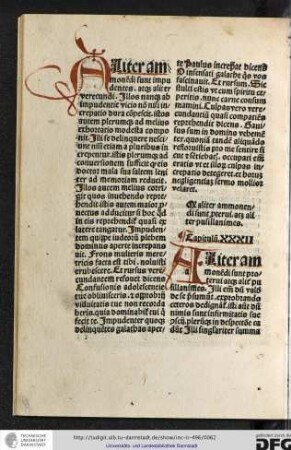 Aliter am
monēdi sunt impu
dentes. atqȝ aliter
verecundi. Illos nanqȝ ab
impudentie vicio nō nisi in
crepatio dura cōpescit. istos
autem plerumqȝ ad melius
exhortatio modesta compo
nit. Illi se delinquere nesci
unt nisi etiam a pluribus in
crepentur. istis plerumqȝ ad
conversionem sufficit qȝ eis
doctor mala sua saltem leni
ter ad memoriam reducit.
Illos autem melius corrigit
quos invehendo repre
hendit. istis autem maior p
uectus adducitur si hoc qd in
eis reprehendit quasi ex
latere tangitur. Impuden
tem quippe iudeorū plebem
dominus aperte increpat in
quit. Frons mulieris mere
tricis facta est tibi. noluisti
erubescere. Et rursus vere
cundantem refovet dicens
Confusionis adolescentie
tue oblivisceris. et opprobrii
viduitatis tue non recorda
beris. quia dominabitur tui q
fecit te. Impudenter quoqȝ
delinquētes galathas aper
te Paulus increpat dicens
O insensati galathe q̄s vos
fascinavit. Et rursum. Sic
stulti estis vt cum spiritu ce
peritis. nunc carne consum
mamini. Culpas vero vere
cundantiū quasi compatiēs
reprehendit dicens. Gavi
sus sum in domino vehemē
ter. quoniā tandē aliquādo
refloruistis pro me sentire si
cut et sētiebatis. occupati em
eratis vt et illoȝ culpas in
crepatio detegeret. et hotum
negligentiā sermo mollior
velaret.
Qualiter ammonen
di sunt proterui. atqȝ ali
ter pusillanimes.
Capitulū. XXXII
Aliter am
monēdi sunt pro
terui atqȝ alit pu
sillanimes. Illi em dū vald
de se p̄sumūt. exprobrando
ceteros dedignāt. isti aūt dū
nimis sunt infirmitatis sue
pscij. plerūqȝ in despectōe ca
dūt Illi singulariter summa
http://tudigit.ulb.tu-darmstadt.de/show/inc-ii-496/0062
Universitäts- und Landesbibliothek Darmstadt
TECHNISCHE
UNIVERSITÄT
DARMSTADT